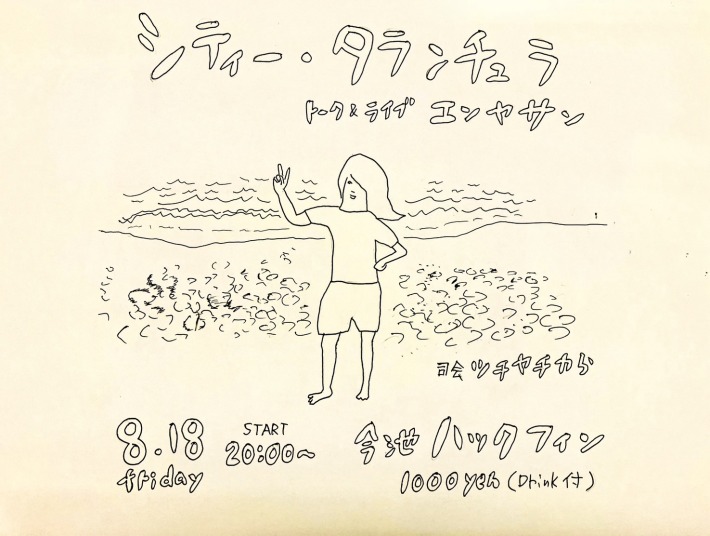 シティー・タランチュラ
トーク&ライブ エンヤサン
司会 ツチヤチカら
8.18 friday START 20:00〜
今池 ハックフィン
1000yen (Drink付)